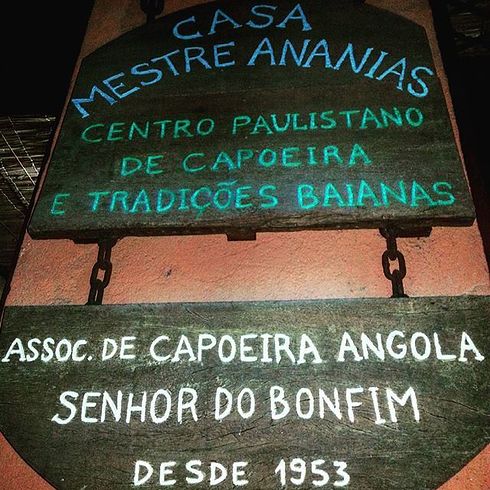 CASA
MESTRE ANANIAS
CENTRO PAULISTANO
DE CAPOEIRA
E TRADIÇÕES BAIANAS
ASSOC. DE CAPOEIRA ANGOLA
SENHOR DO BONFIM
DESDE 1953